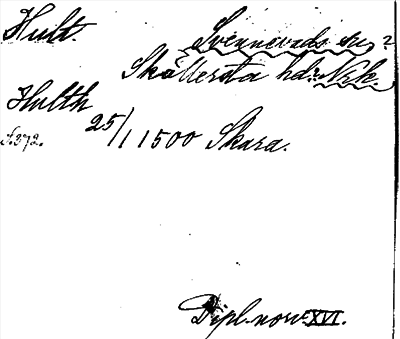 Hult. Svennevads sn?
Skyllersta hd: Nrk.
Hulth
s. 372. 25/1 1500 Skara.
Dipl. norv. XVI.